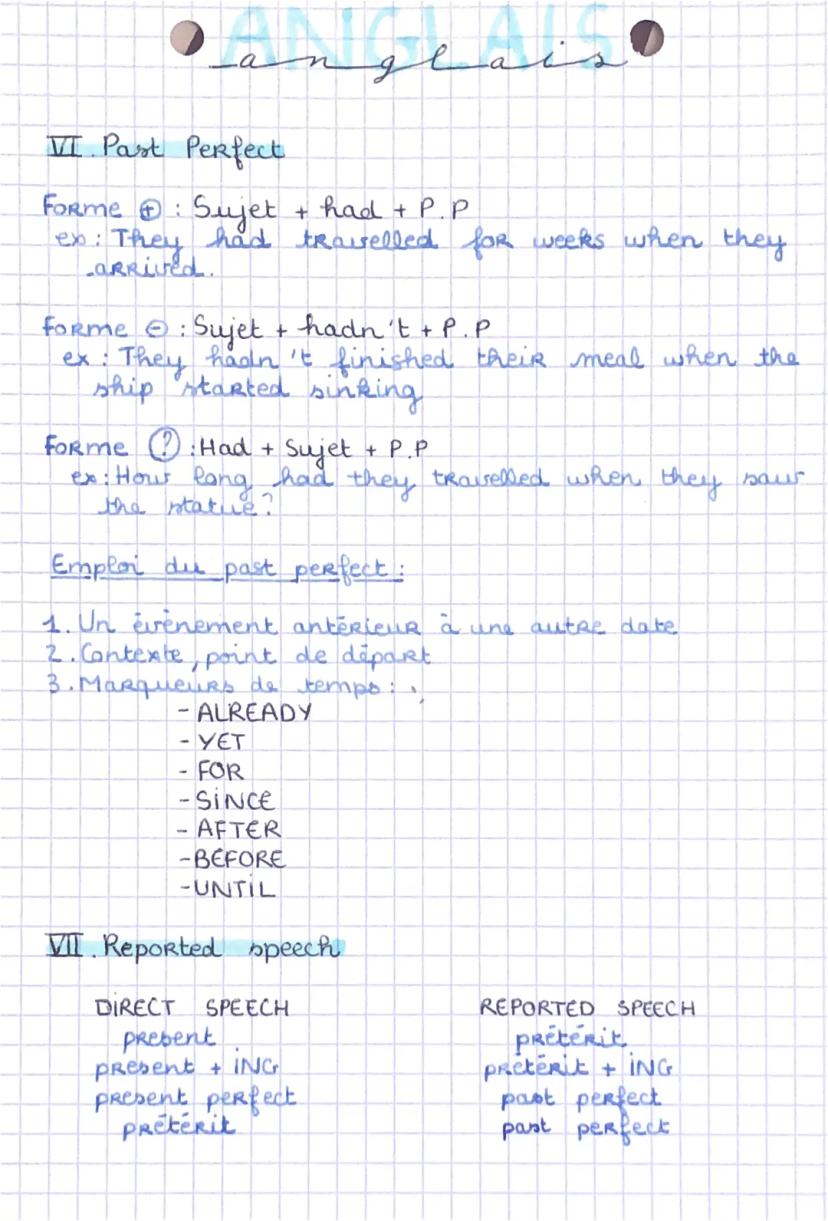 ANGLAIS
anglais
VI. Past Perfect
Forme ⊕ : Sujet + had + P.P
ex : They had travelled for weeks when they
arrived.
Forme ⊖ : Sujet + hadn't + P.P
ex : They hadn't finished their meal when the
ship started sinking
Forme ? : Had + Sujet + P.P
ex : How long had they travelled when they saw
the statue?
Emploi du past perfect :
1. Un évènement antérieur à une autre date
2. Contexte, point de départ
3. Marqueurs de temps :
- ALREADY
- YET
- FOR
- SINCE
- AFTER
- BEFORE
- UNTIL
VII. Reported speech
DIRECT SPEECH REPORTED SPEECH
present prétérit
present + ING prétérit + ING
present perfect past perfect
prétérit past perfect